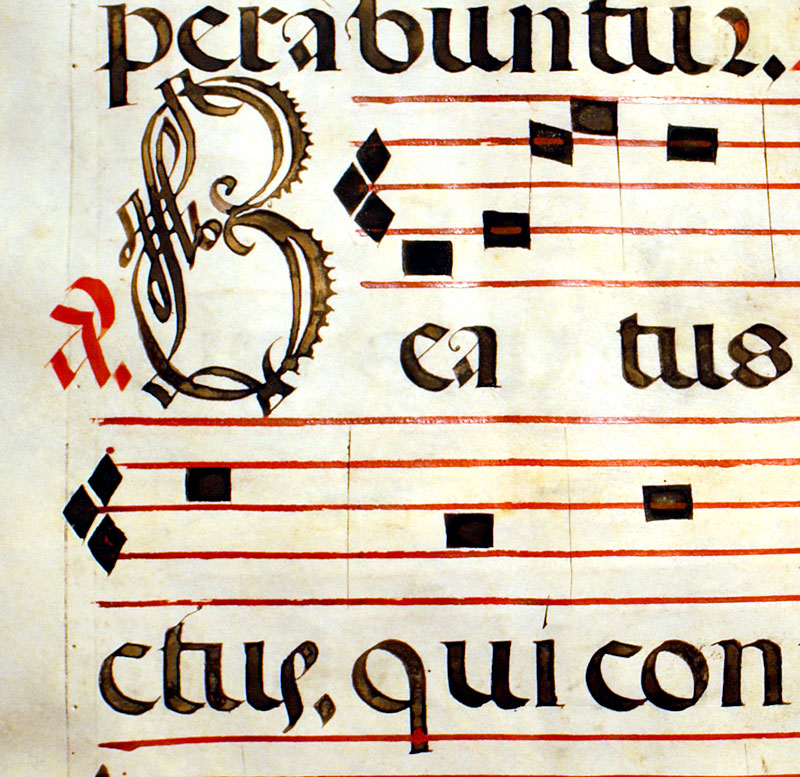 perabuntur.
a. Beatus
ctus, qui con